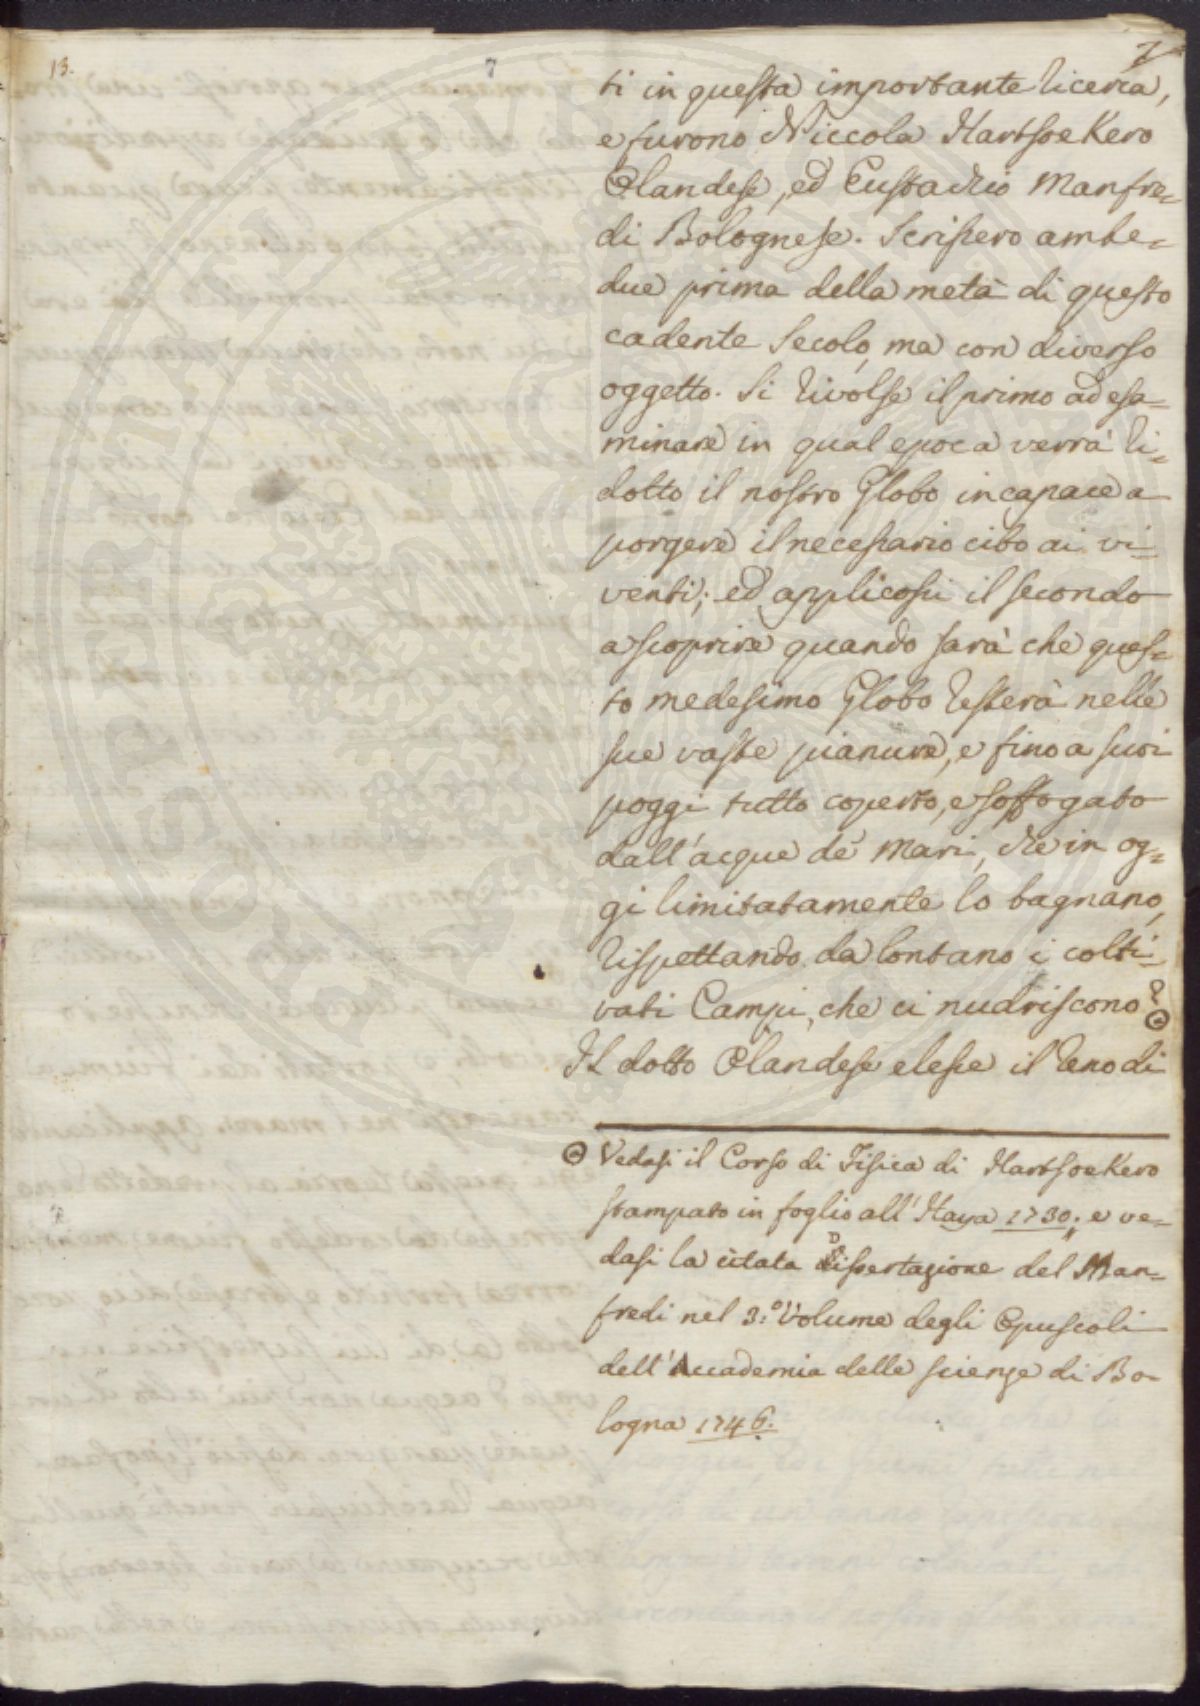 13.
7
7
ti in questa importante ricerca,
e furono Niccola Hartsoekero
Olandese, ed Eustachio Manfre=
di Bolognese. Scrissero ambe=
due prima della metà di questo
cadente secolo, ma con diverso
oggetto. Si rivolse il primo ad esa=
minare in qual epoca verrà ri=
dotto il nostro Globo incapace a
porgere il necessario cibo ai vi=
venti; ed applicossi il secondo
a scoprire quando sarà che ques=
to medesimo Globo resterà nelle
sue vaste pianure, e fino a suoi
poggi tutto coperto, e soffogato
dall'acque de' Mari, che in og=
gi limitatamente lo bagnano,
rispettando da lontano i colti=
vati Campi, che ci nudriscono?
Il dotto Olandese elesse il Reno di
Vedasi il Corso di Fisica di Hartsoekero
stampato in foglio all'Haya 1730; e ve=
dasi la citata Dissertazione del Man=
fredi nel 3.º Volume degli Opuscoli
dell'Accademia delle scienze di Bo=
logna 1746.